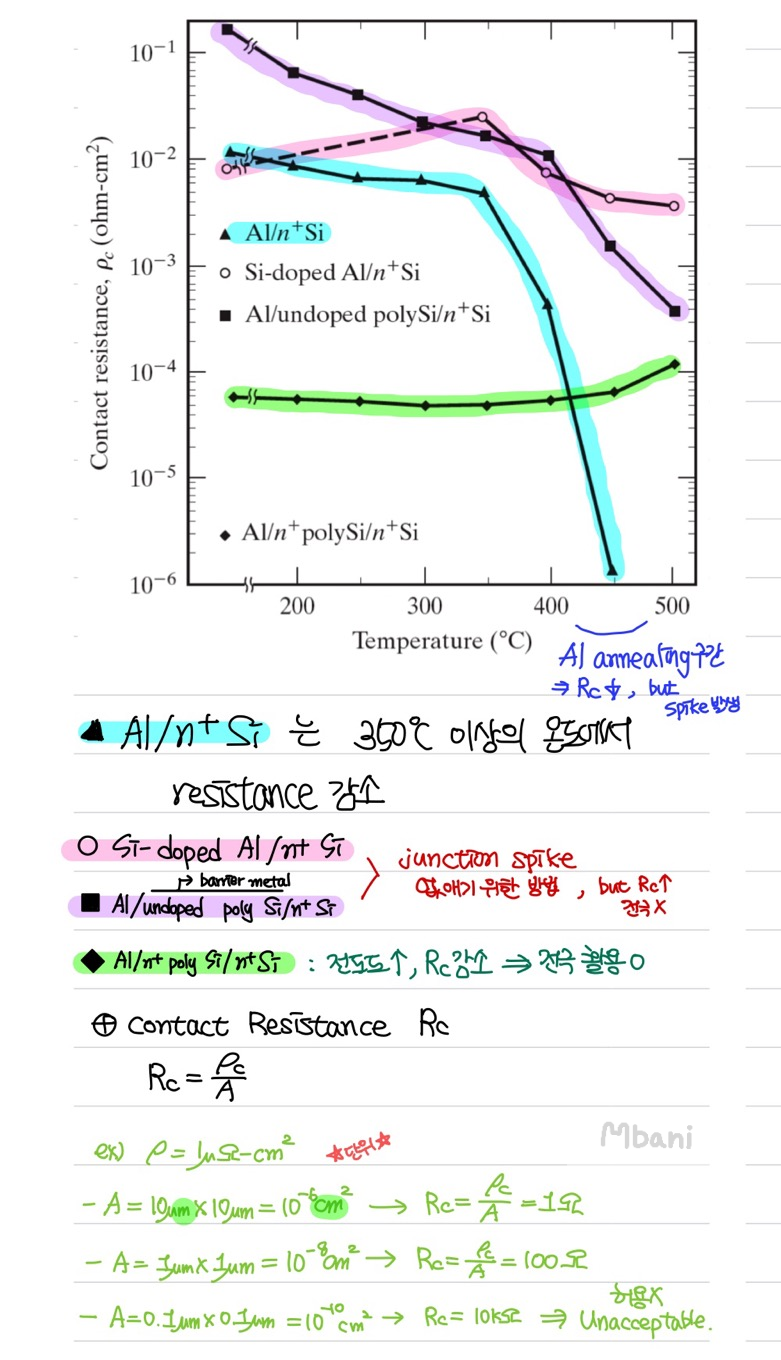 10⁻¹
10⁻²
10⁻³
10⁻⁴
10⁻⁵
10⁻⁶
Contact resistance, ρc (ohm-cm²)
▲ Al/n⁺Si
○ Si-doped Al/n⁺Si
■ Al/undoped polySi/n⁺Si
◆ Al/n⁺polySi/n⁺Si
200 300 400 500
Temperature (°C)
Al annealing 구간
⇒ Rc↓, but
spike 발생
▲ Al/n⁺ Si 는 350℃ 이상의 온도에서
resistance 감소
○ Si-doped Al/n+ Si
↱ barrier metal
■ Al/undoped poly Si/n⁺ Si
junction spike
없애기 위한 방법, but Rc↑
전극 X
◆ Al/n+ poly Si/n+Si : 전도도↑, Rc감소 ⇒ 전극 활용 O
⊕ Contact Resistance Rc
Rc = ρc/A
Mbani
ex) ρ = 1μΩ-cm² ★단위★
- A = 10μm×10μm = 10⁻⁶cm² → Rc = ρc/A = 1Ω
- A = 1μm×1μm = 10⁻⁸cm² → Rc = ρc/A = 100Ω
- A=0.1μm×0.1μm = 10⁻¹⁰cm² → Rc = 10kΩ ⇒ Unacceptable.
허용X